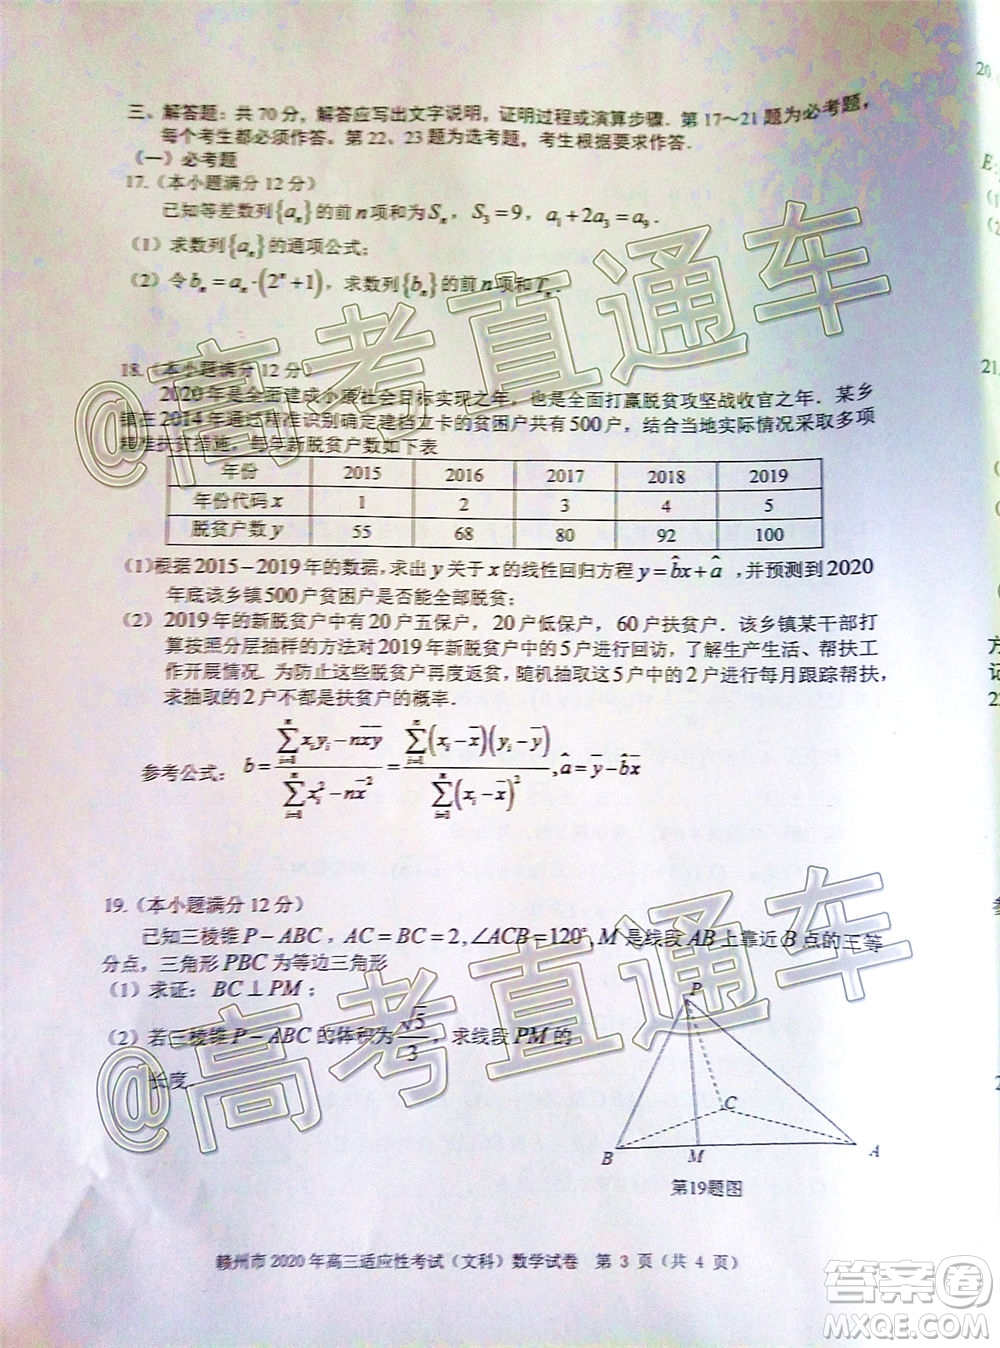 三、解答题：共 70 分，解答应写出文字说明，证明过程或演算步骤．第 17～21 题为必考题，
每个考生都必须作答．第 22、23题为选考题，考生根据要求作答．
（一）必考题
17.（本小题满分 12 分）
已知等差数列{aₙ}的前 n 项和为 Sₙ，S₃=9，a₁+2a₃=a₉．
（1）求数列{aₙ}的通项公式；
（2）令 bₙ=aₙ·(2ⁿ+1)，求数列{bₙ}的前 n 项和 Tₙ．
18.（本小题满分 12 分）
2020 年是全面建成小康社会目标实现之年，也是全面打赢脱贫攻坚战收官之年．某乡
镇在 2014 年通过精准识别确定建档立卡的贫困户共有 500 户，结合当地实际情况采取多项
精准扶贫措施，每年新脱贫户数如下表
年份 2015 2016 2017 2018 2019
年份代码 x 1 2 3 4 5
脱贫户数 y 55 68 80 92 100
（1）根据 2015－2019 年的数据，求出 y 关于 x 的线性回归方程 y=b̂x+â，并预测到 2020
年底该乡镇 500 户贫困户是否能全部脱贫；
（2）2019 年的新脱贫户中有 20 户五保户，20 户低保户，60 户扶贫户．该乡镇某干部打
算按照分层抽样的方法对 2019 年新脱贫户中的 5 户进行回访，了解生产生活、帮扶工
作开展情况．为防止这些脱贫户再度返贫，随机抽取这 5 户中的 2 户进行每月跟踪帮扶，
求抽取的 2 户不都是扶贫户的概率．
参考公式：b=(∑ᵢ₌₁ⁿ xᵢyᵢ−nx̄ȳ)/(∑ᵢ₌₁ⁿ xᵢ²−nx̄²)=(∑ᵢ₌₁ⁿ(xᵢ−x̄)(yᵢ−ȳ))/(∑ᵢ₌₁ⁿ(xᵢ−x̄)²),â=ȳ−b̂x̄
19.（本小题满分 12 分）
已知三棱锥 P－ABC，AC=BC=2,∠ACB=120°,M 是线段 AB 上靠近 B 点的三等
分点，三角形 PBC 为等边三角形
（1）求证：BC⊥PM；
（2）若三棱锥 P－ABC 的体积为 √5/3，求线段 PM 的
长度．
P
C
B
M
A
第19题图
赣州市 2020 年高三适应性考试（文科）数学试卷 第 3 页（共 4 页）
@高考直通车
@高考直通车
答案圈
MXQE.COM
20.
E
21.